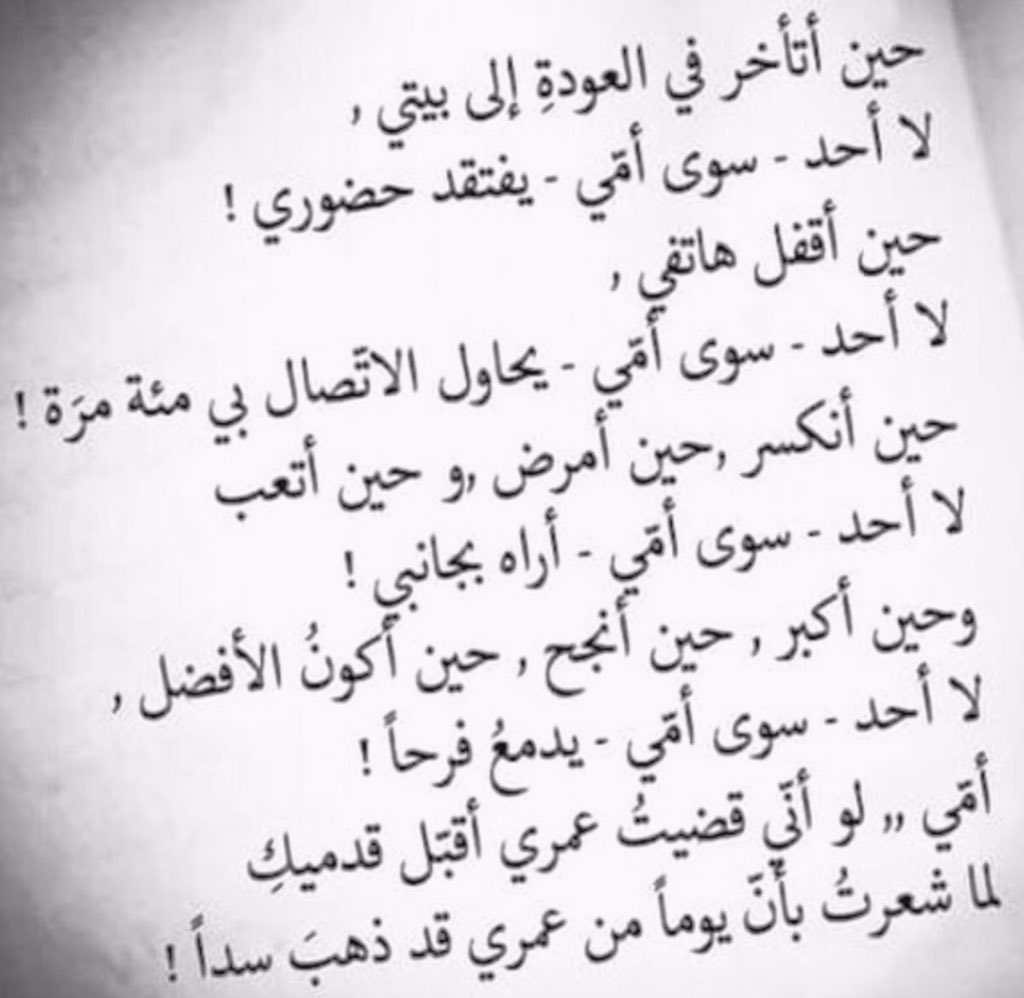 حين أتأخر في العودةِ إلى بيتي ,
لا أحد - سوى أمّي - يفتقد حضوري !
حين أقفل هاتفي ,
لا أحد - سوى أمّي - يحاول الاتّصال بي مئة مرَة !
حين أنكسر ,حين أمرض ,و حين أتعب
لا أحد - سوى أمّي - أراه بجانبي !
وحين أكبر , حين أنجح , حين أكونُ الأفضل ,
لا أحد - سوى أمّي - يدمعُ فرحاً !
أمّي ,, لو أنّي قضيتُ عمري أقبّل قدميكِ
لما شعرتُ بأنّ يوماً من عمري قد ذهبَ سداً !